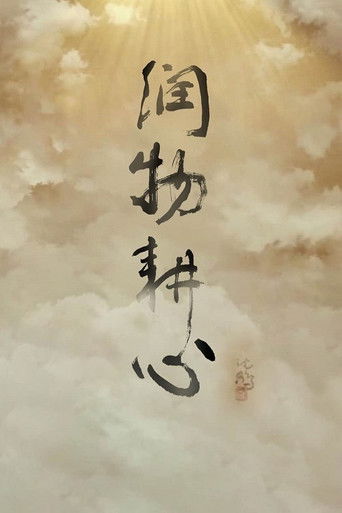 润物耕心